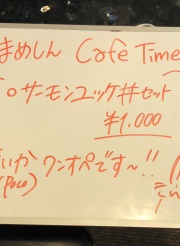 まめしん Cafe Time
「○サーモンユッケ丼セット
¥1.000
いか ワンオペです〜!!
(poco)